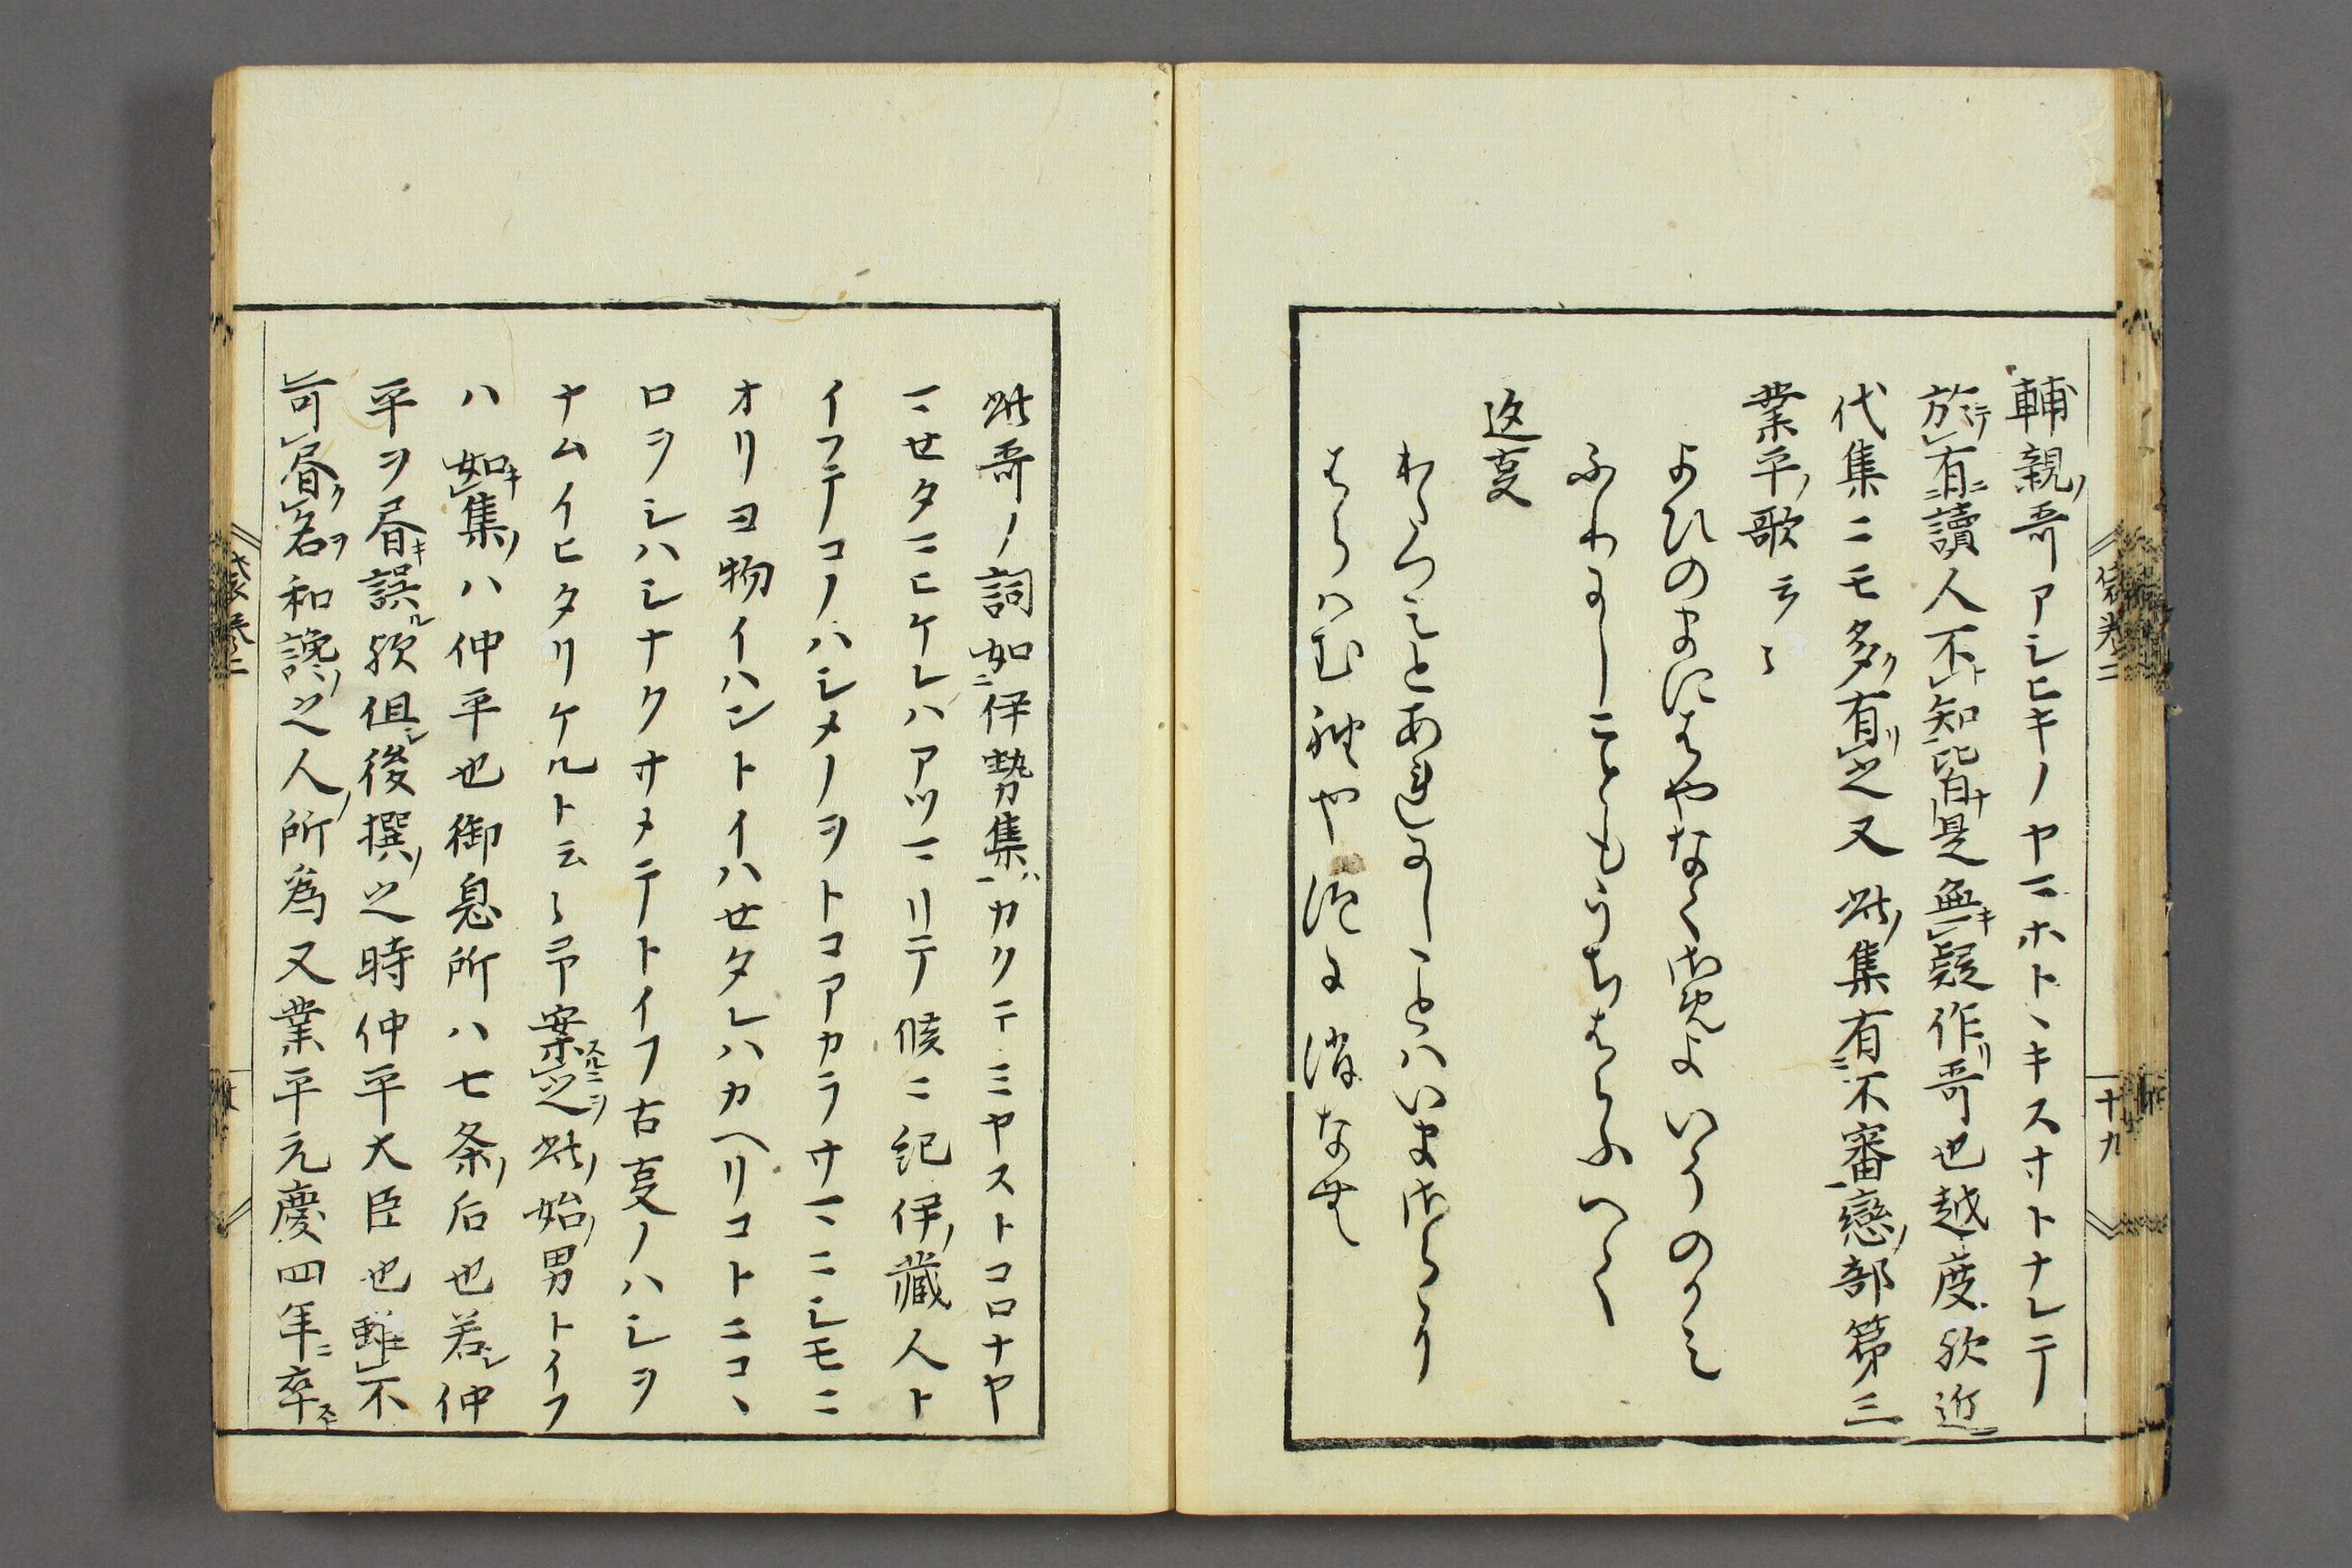 輔親ノ哥アシヒキノヤマホトヽキスサトナレテ
於テハ有ニ讀人不ト知皆ナ是無キ疑作リ哥也越度欤近
代集ニモ多ク有リ之又此ノ集有ニ不審戀ノ部第三
業平ノ歌ニ云々
よひのまにはやなくさめよいその
ふりにしとこともうちはらふへく
返事
わたつみとあれにしとこをいまさらに
はらはむ袖や泡と消なむ
袋巻二
十九
此哥ノ詞如ニ伊勢集ハカクテミヤストコロナヤ
マセタマヒケレハアツマリテ候ニ紀伊ノ藏人ト
イフテコノハシメノヲトコアカラサマニシモニ
オリヨ物イハントイハセタレハカヘリコトニコヽ
ロヲシハシナクサメテトイフ古叓ノハシヲ
ナムイヒタリケルト云々予案スルニ之ヲ此ノ始ノ男トイフ
ハ如キ集ノハ仲平也御息所ハ七条ノ后也若シ仲
平ヲ昏キ誤ル欤但シ後撰ノ之時仲平大臣也雖不
可昏ク名ヲ和讒ノ之人ノ所為又業平元慶四年ニ卒ス